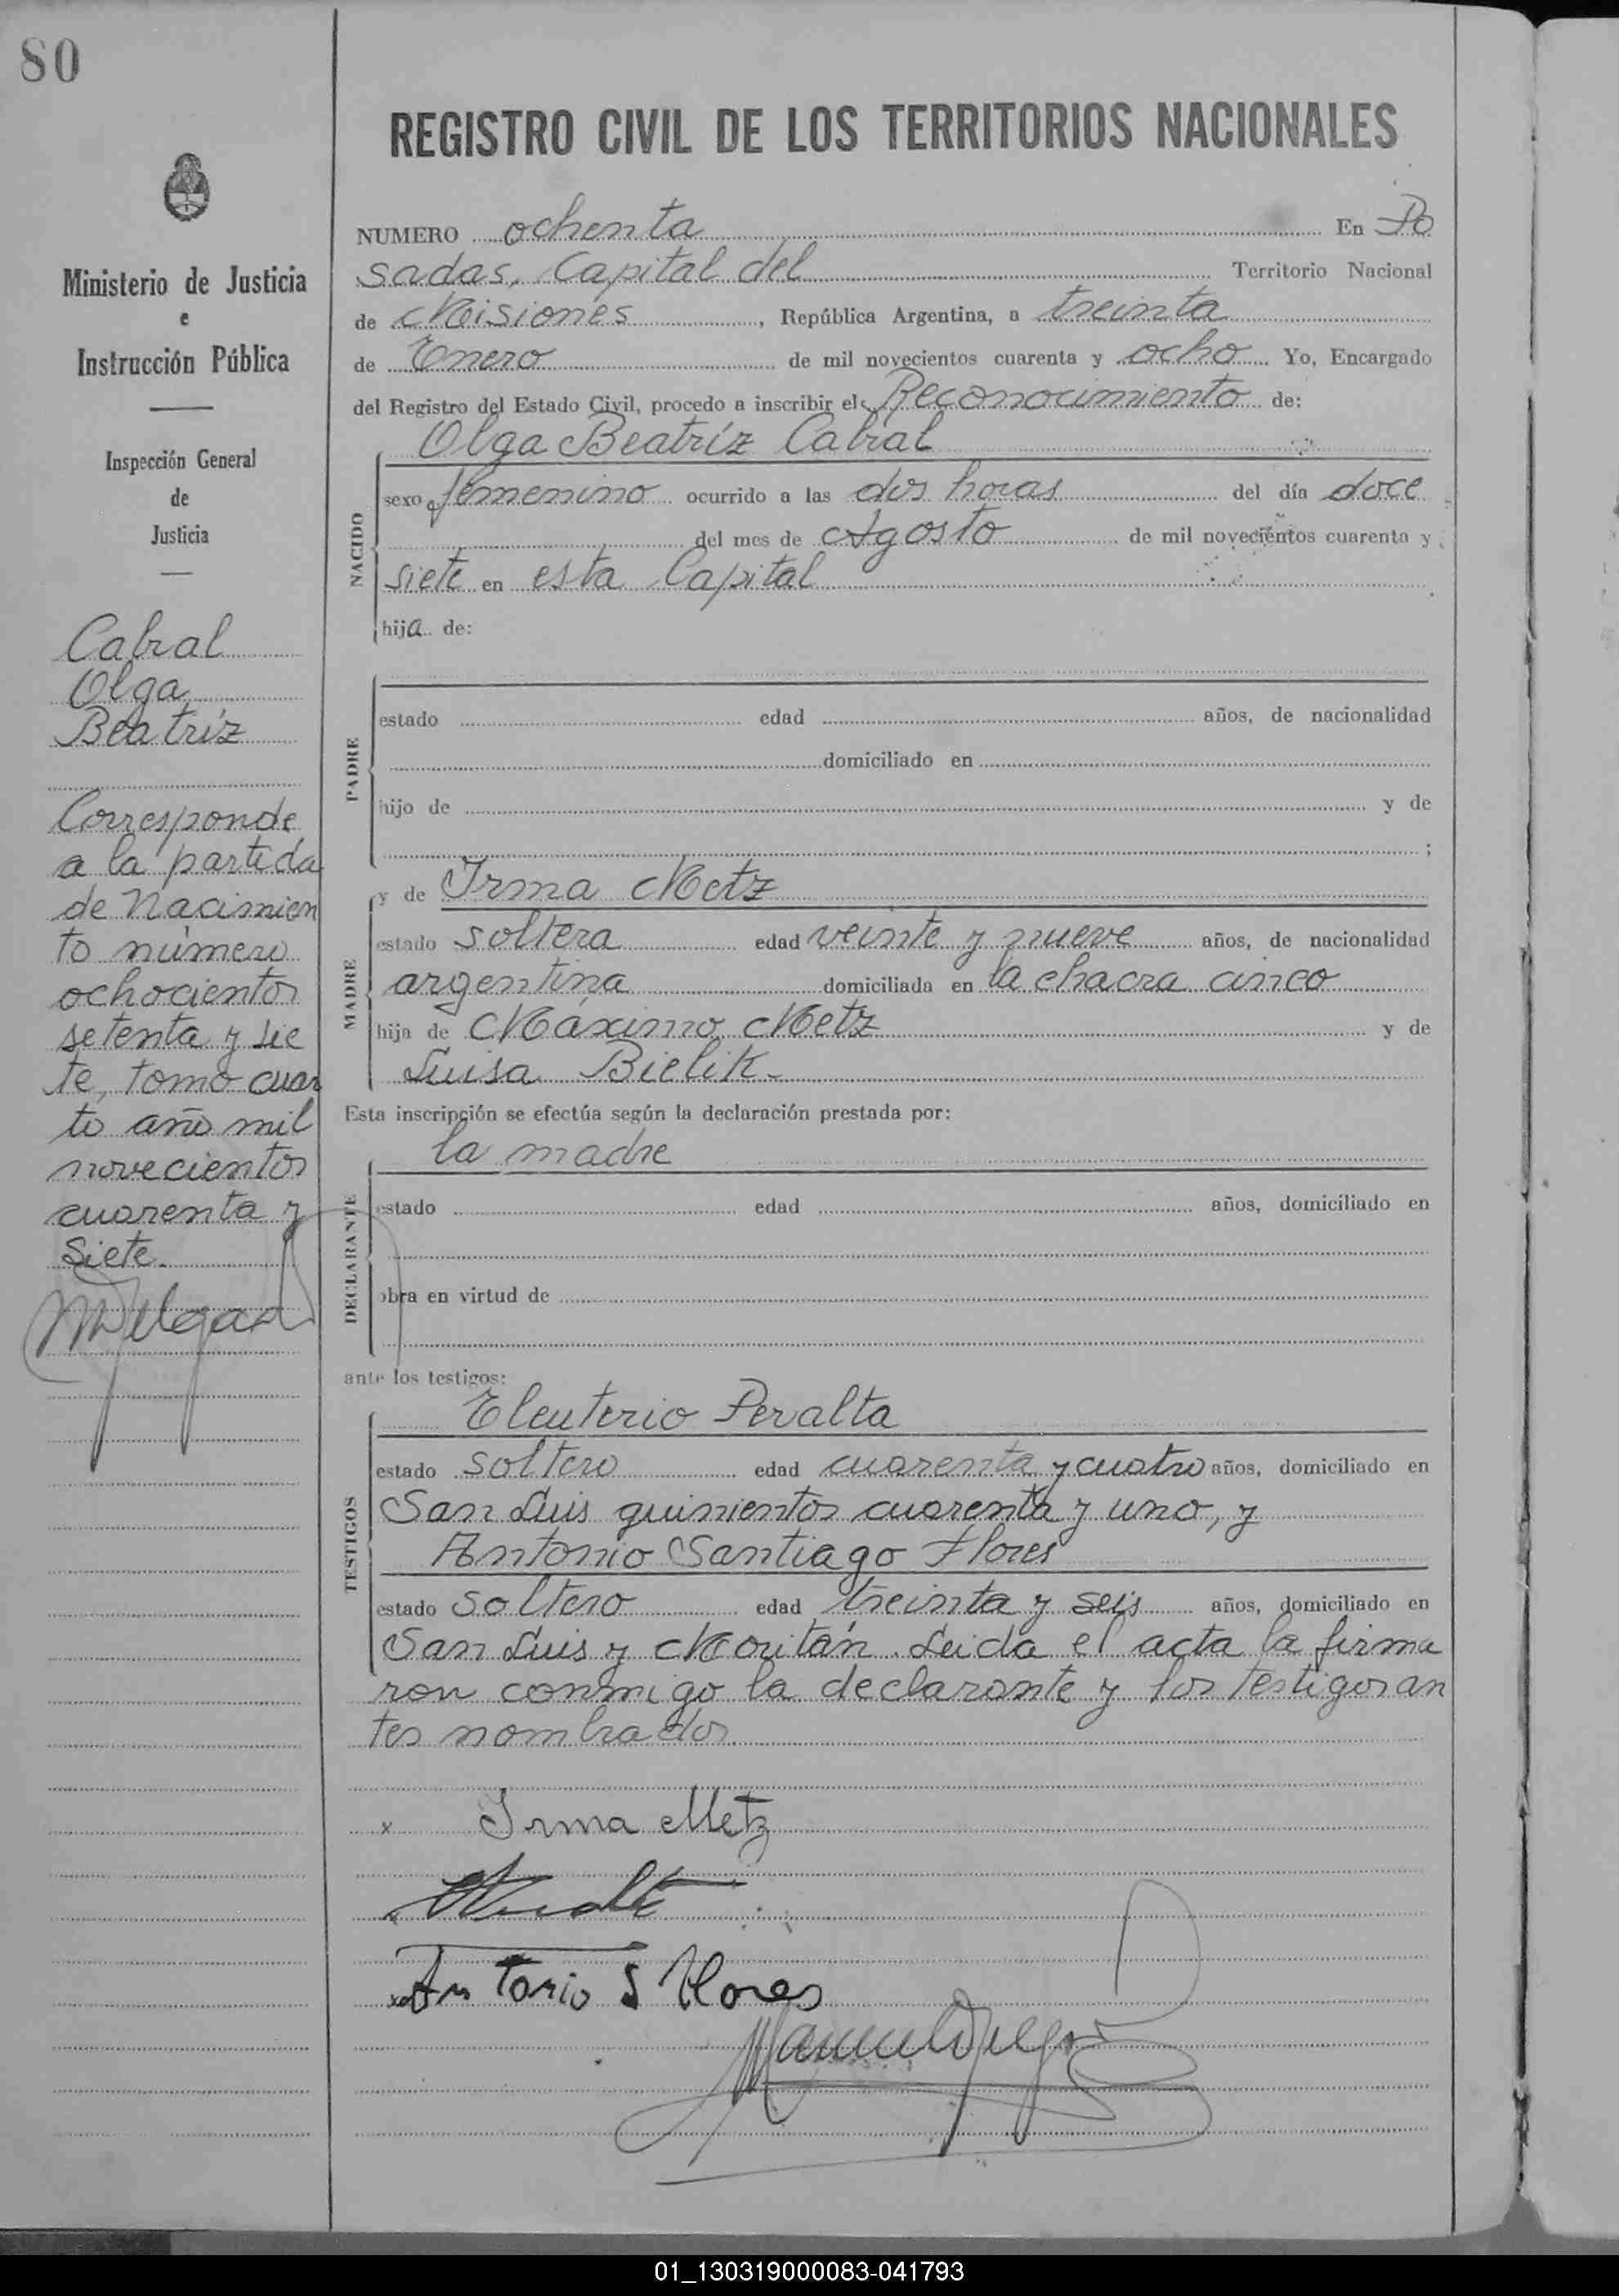 80
REGISTRO CIVIL DE LOS TERRITORIOS NACIONALES
Ministerio de Justicia
e
Instrucción Pública
Inspección General
de
Justicia
Cabral
Olga
Beatríz
Corresponde
a la partida
de Nacimien
to número
ochocientos
setenta y sie
te, tomo cuar
to año mil
novecientos
cuarenta y
siete.
NUMERO ochenta En Po
sadas, Capital del Territorio Nacional
de Misiones, República Argentina, a treinta
de Enero de mil novecientos cuarenta y ocho Yo, Encargado
del Registro del Estado Civil, procedo a inscribir el Reconocimiento de:
Olga Beatríz Cabral
NACIDO
sexo femenino ocurrido a las dos horas del día doce
del mes de Agosto de mil novecientos cuarenta y
siete en esta Capital
hija de:
PADRE
estado edad años, de nacionalidad
domiciliado en
hijo de y de
;
MADRE
y de Irma Metz
estado soltera edad veinte y nueve años, de nacionalidad
argentina domiciliada en la chacra cinco
hija de Máximo Metz y de
Luisa Bielik.
Esta inscripción se efectúa según la declaración prestada por:
la madre
DECLARANTE
estado edad años, domiciliado en
obra en virtud de
ante los testigos:
TESTIGOS
Eleuterio Peralta
estado soltero edad cuarenta y cuatro años, domiciliado en
San Luis quinientos cuarenta y uno, y
Antonio Santiago Flores
estado soltero edad treinta y seis años, domiciliado en
San Luis y Moritán. Leida el acta la firma
ron conmigo la declarante y los testigos an
tes nombrados
x Irma Metz
Antonio S Flores
01_130319000083-041793